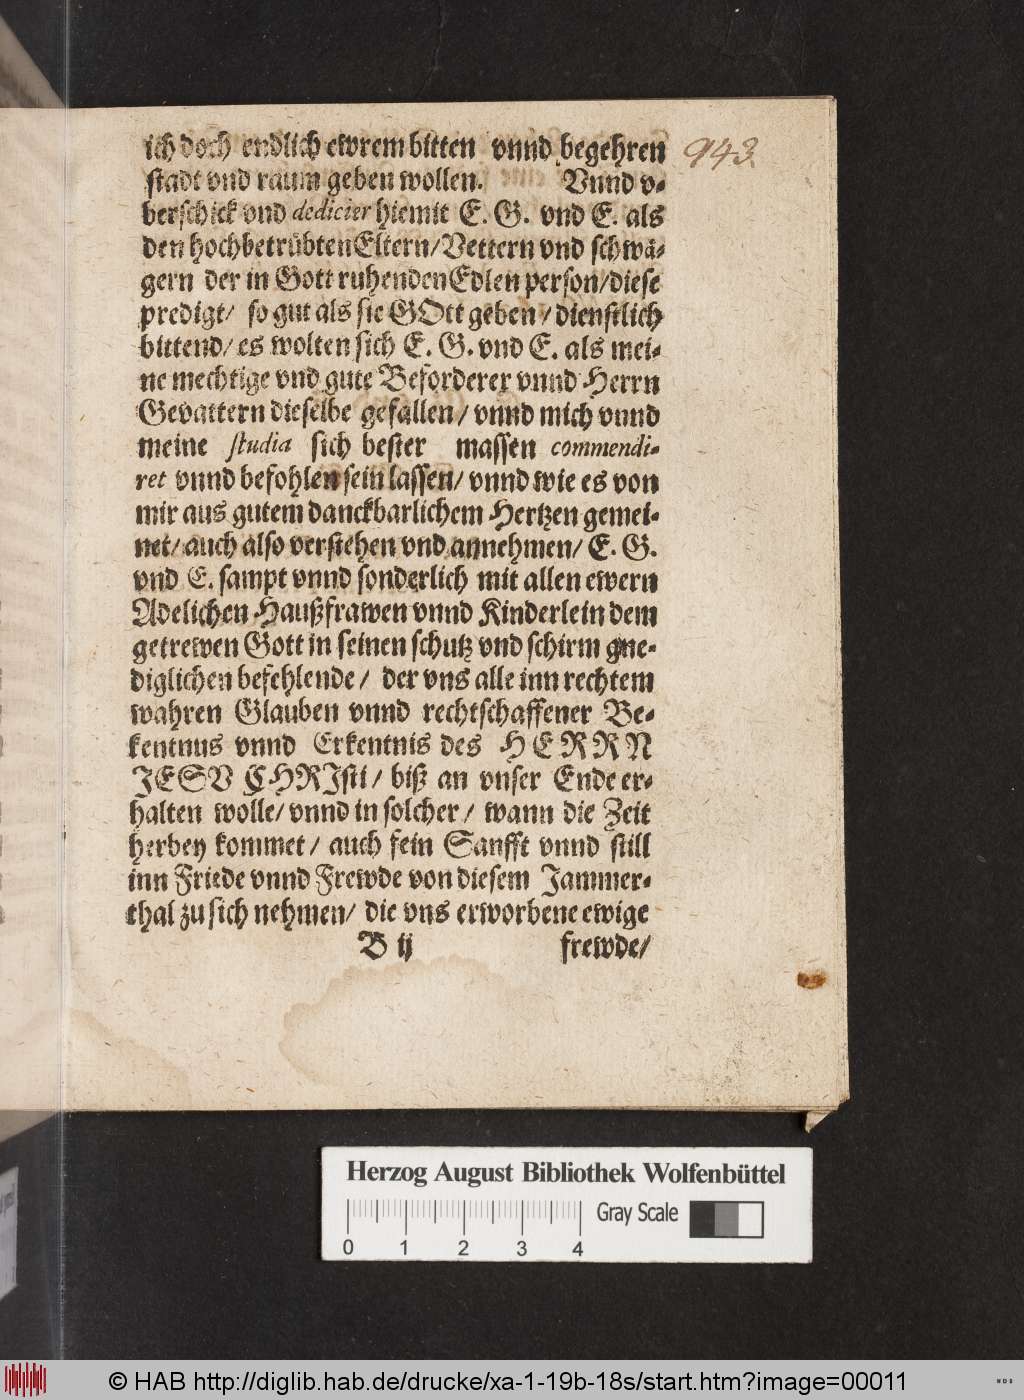 ich doch endlich ewrem bitten vnnd begehren
943.
stadt vnd raum geben wollen. Vnnd v-
berschick vnd dedicier hiemit E. G. vnd E. als
den hochbetrübten Eltern/ Vettern vnd schwä-
gern der in Gott ruhenden Edlen person/ diese
predigt/ so gut als sie GOtt geben/ dienstlich
bittend/ es wolten sich E. G. vnd E. als mei-
ne mechtige vnd gute Beforderer vnnd Herrn
Gevattern dieselbe gefallen/ vnnd mich vnnd
meine studia sich bester massen commendi-
ret vnnd befohlen sein lassen/ vnnd wie es von
mir aus gutem danckbarlichem Hertzen gemei-
net/ auch also verstehen vnd annehmen/ E. G.
vnd E. sampt vnnd sonderlich mit allen ewern
Adelichen Haußfrawen vnnd Kinderlein dem
getrewen Gott in seinen schutz vnd schirm gne-
diglichen befehlende/ der vns alle inn rechtem
wahren Glauben vnnd rechtschaffener Be-
kentnus vnnd Erkentnis des HERRN
JESV CHRJsti/ biß an vnser Ende er-
halten wolle/ vnnd in solcher/ wann die Zeit
herbey kommet/ auch fein Sanfft vnnd still
inn Friede vnnd Frewde von diesem Jammer-
thal zu sich nehmen/ die vns erworbene ewige
B ij frewde/
Herzog August Bibliothek Wolfenbüttel
Gray Scale
0 1 2 3 4
© HAB http://diglib.hab.de/drucke/xa-1-19b-18s/start.htm?image=00011